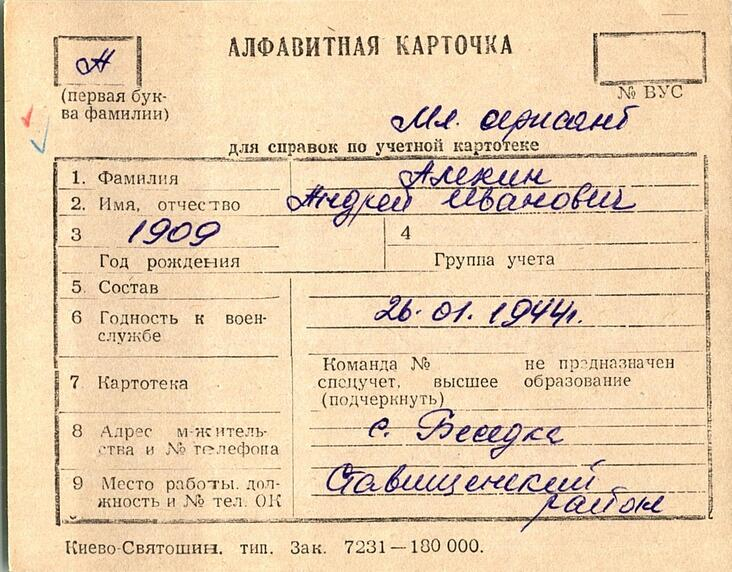 АЛФАВИТНАЯ КАРТОЧКА
А
(первая бук-
ва фамилии)
№ ВУС
Мл. сержант
для справок по учетной картотеке
1. Фамилия Алекин
2. Имя, отчество Андрей Иванович
3 1909 4
Год рождения Группа учета
5. Состав
6 Годность к воен-
службе
26.01.1944г.
Команда № не предназначен
7. Картотека спецучет, высшее образование
(подчеркнуть)
8 Адрес м-житель-
ства и № телефона
с. Беседка
9 Место работы, дол-
жность и № тел. ОК
Ставищенский
район
Киево-Святошин. тип. Зак. 7231—180 000.